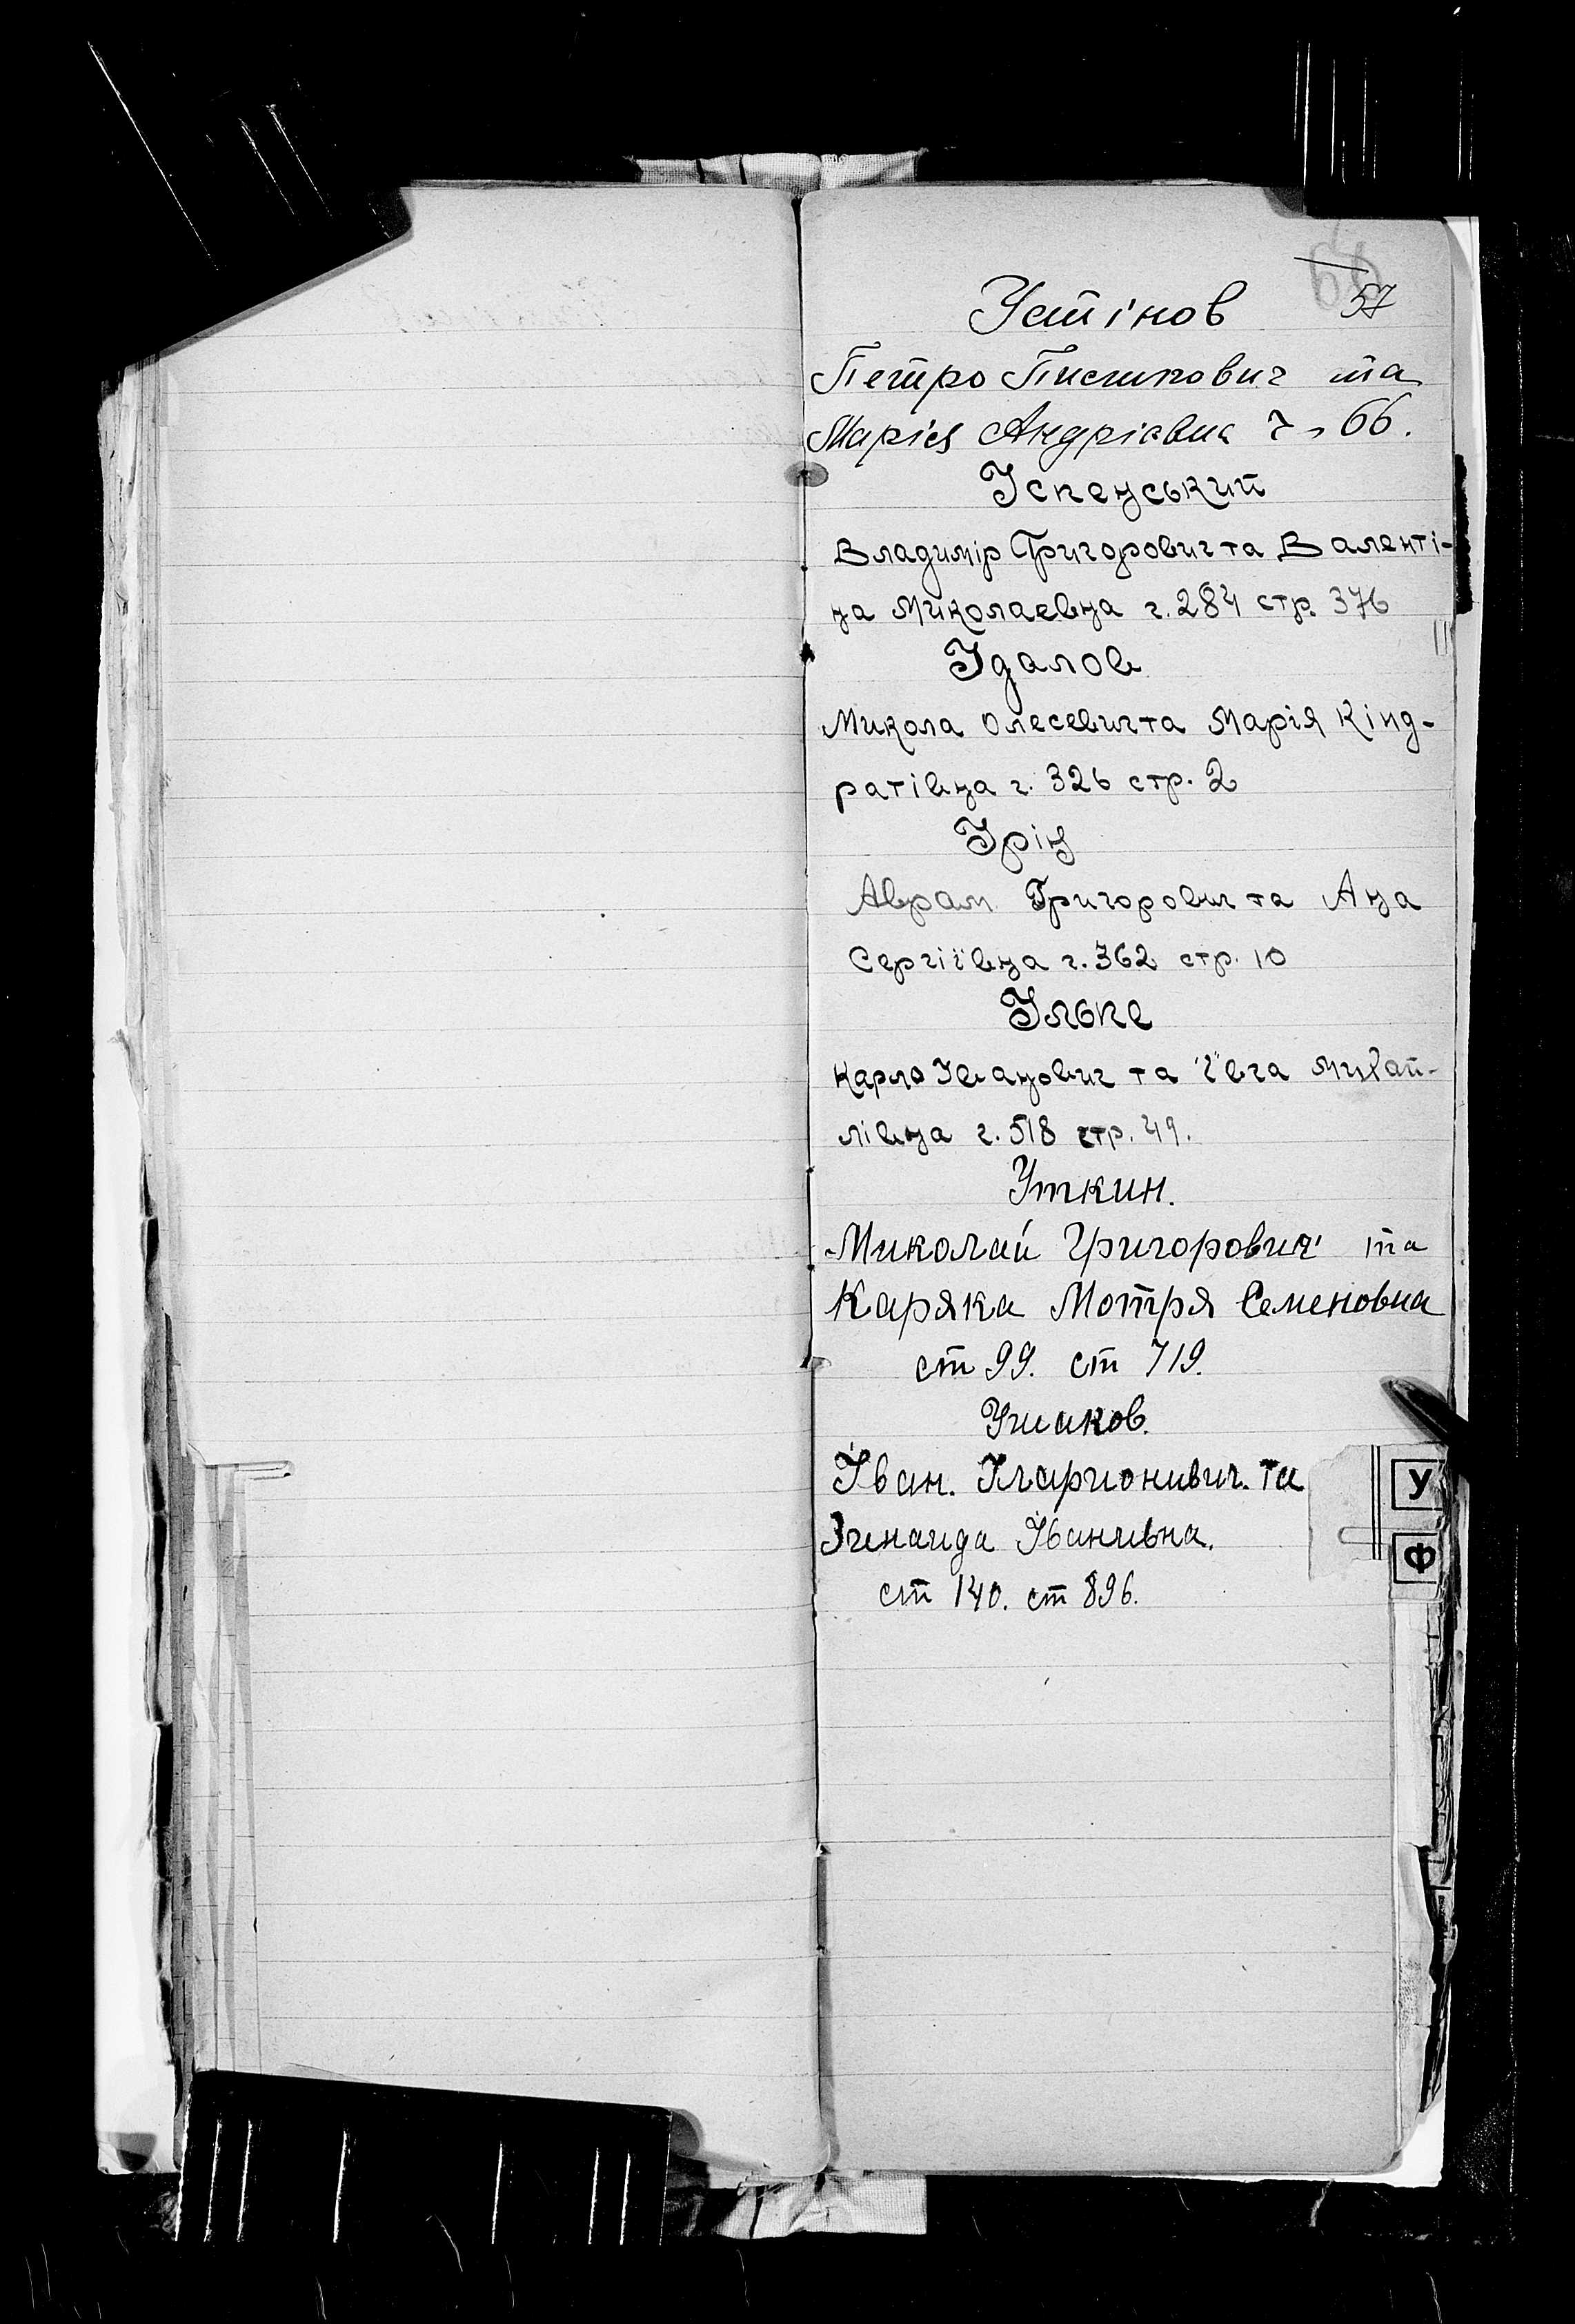 57
Устінов
Петро Пилипович та
Марія Андріавна 7 - 66.
Успенський
Владимір Григорович та Валенті-
на Миколаевна г. 284 стр. 376
Удалов
Микола Олесевич та Марія Кінд-
ратівна г. 326 стр. 2
Урін
Аврам Григорович та Ана
Сергіївна г. 362 стр. 10
Ульпе
Карло Іванович та Ївга Михай-
лівна г. 518 стр. 49.
Уткин.
Миколай Григорович та
Каряка Мотря Семеновна
ст 99. ст 719.
Ушаков.
Іван. Іларионивич. та
Зинаида Іванивна.
ст 140. ст 896.
У
Ф